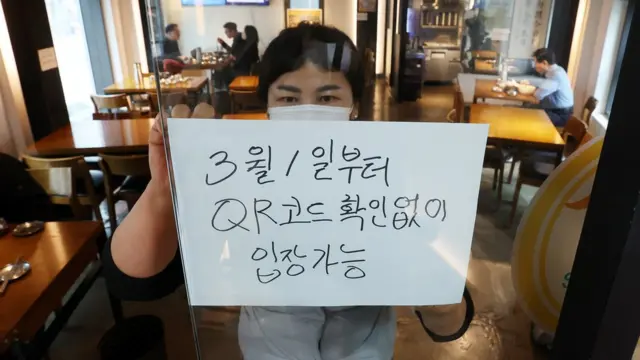 3월 1일부터
QR코드 확인없이
입장가능